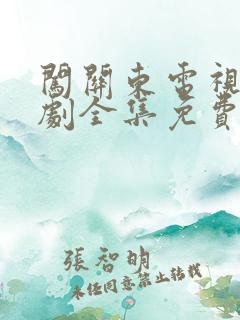 闖關東電視
劇全集免費
張智明
未经同意禁止转载